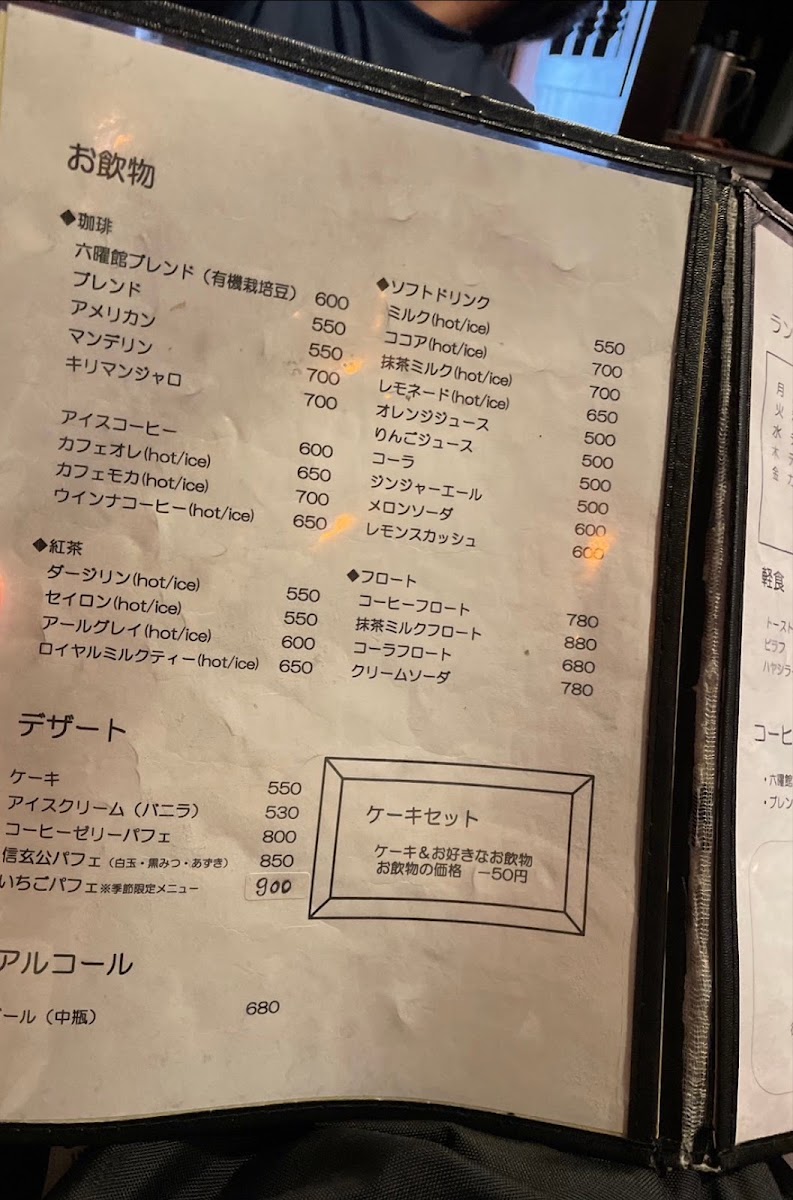 お飲物
◆珈琲
六曜館ブレンド（有機栽培豆） 600
ブレンド 550
アメリカン 550
マンデリン 700
キリマンジャロ 700
アイスコーヒー 600
カフェオレ(hot/ice) 650
カフェモカ(hot/ice) 700
ウインナコーヒー(hot/ice) 650
◆紅茶
ダージリン(hot/ice) 550
セイロン(hot/ice) 550
アールグレイ(hot/ice) 600
ロイヤルミルクティー(hot/ice) 650
◆ソフトドリンク
ミルク(hot/ice) 550
ココア(hot/ice) 700
抹茶ミルク(hot/ice) 700
レモネード(hot/ice) 650
オレンジジュース 500
りんごジュース 500
コーラ 500
ジンジャーエール 500
メロンソーダ 600
レモンスカッシュ 600
◆フロート
コーヒーフロート 780
抹茶ミルクフロート 880
コーラフロート 680
クリームソーダ 780
デザート
ケーキ 550
アイスクリーム（バニラ） 530
コーヒーゼリーパフェ 800
信玄公パフェ（白玉・黒みつ・あずき） 850
いちごパフェ※季節限定メニュー 900
ケーキセット
ケーキ＆お好きなお飲物
お飲物の価格 －50円
アルコール
ール（中瓶） 680
ラン
月
火
水
木
金
軽食
トースト
ピラフ
ハヤシラ
コーヒ
・六曜館
・ブレン